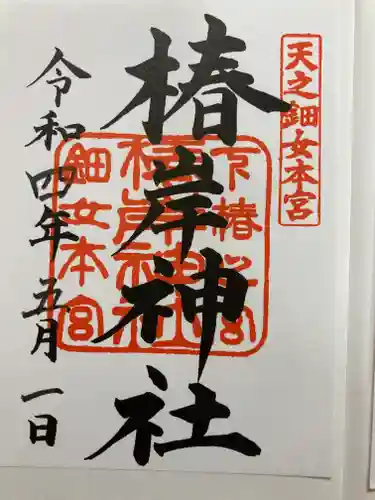 天之鈿女本宮
椿岸神社
下椿
椿岸神社
鈿女本宮
令和四年五月一日